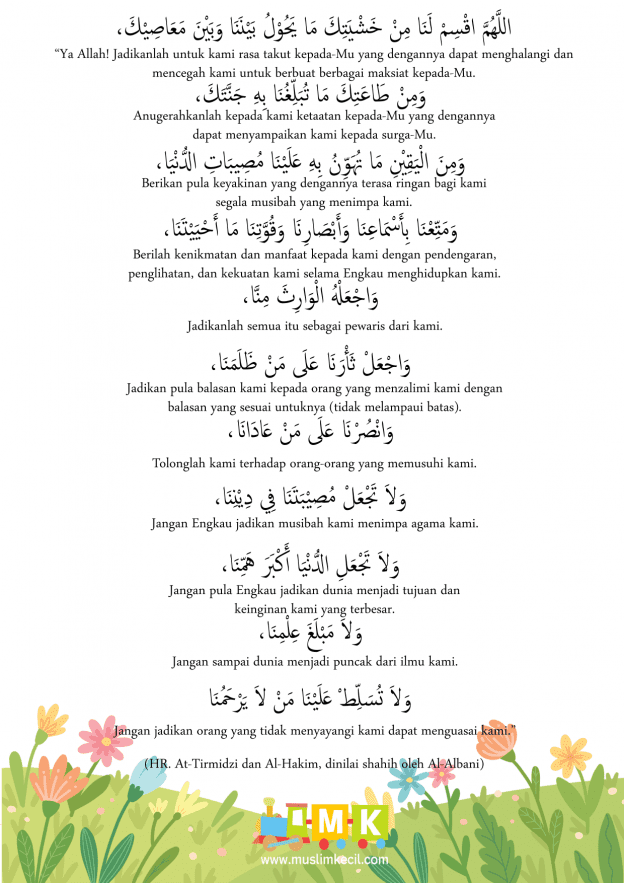 اللَّهُمَّ اقْسِمْ لَنَا مِنْ خَشْيَتِكَ مَا يَحُوْلُ بَيْنَنَا وَبَيْنَ مَعَاصِيْكَ،
“Ya Allah! Jadikanlah untuk kami rasa takut kepada-Mu yang dengannya dapat menghalangi dan
mencegah kami untuk berbuat berbagai maksiat kepada-Mu.
وَمِنْ طَاعَتِكَ مَا تُبَلِّغُنَا بِهِ جَنَّتَكَ،
Anugerahkanlah kepada kami ketaatan kepada-Mu yang dengannya
dapat menyampaikan kami kepada surga-Mu.
وَمِنَ الْيَقِيْنِ مَا تُهَوِّنُ بِهِ عَلَيْنَا مُصِيبَاتِ الدُّنْيَا،
Berikan pula keyakinan yang dengannya terasa ringan bagi kami
segala musibah yang menimpa kami.
وَمَتِّعْنَا بِأَسْمَاعِنَا وَأَبْصَارِنَا وَقُوَّتِنَا مَا أَحْيَيْتَنَا،
Berilah kenikmatan dan manfaat kepada kami dengan pendengaran,
penglihatan, dan kekuatan kami selama Engkau menghidupkan kami.
وَاجْعَلْهُ الْوَارِثَ مِنَّا،
Jadikanlah semua itu sebagai pewaris dari kami.
وَاجْعَلْ ثَأْرَنَا عَلَى مَنْ ظَلَمَنَا،
Jadikan pula balasan kami kepada orang yang menzalimi kami dengan
balasan yang sesuai untuknya (tidak melampaui batas).
وَانْصُرْنَا عَلَى مَنْ عَادَانَا،
Tolonglah kami terhadap orang-orang yang memusuhi kami.
وَلاَ تَجْعَلْ مُصِيْبَتَنَا فِي دِيْنِنَا،
Jangan Engkau jadikan musibah kami menimpa agama kami.
وَلاَ تَجْعَلِ الدُّنْيَا أَكْبَرَ هَمِّنَا،
Jangan pula Engkau jadikan dunia menjadi tujuan dan
keinginan kami yang terbesar.
وَلاَ مَبْلَغَ عِلْمِنَا،
Jangan sampai dunia menjadi puncak dari ilmu kami.
وَلاَ تُسَلِّطْ عَلَيْنَا مَنْ لاَ يَرْحَمُنَا
Jangan jadikan orang yang tidak menyayangi kami dapat menguasai kami.”
(HR. At-Tirmidzi dan Al-Hakim, dinilai shahih oleh Al-Albani)
L-M-K
www.muslimkecil.com